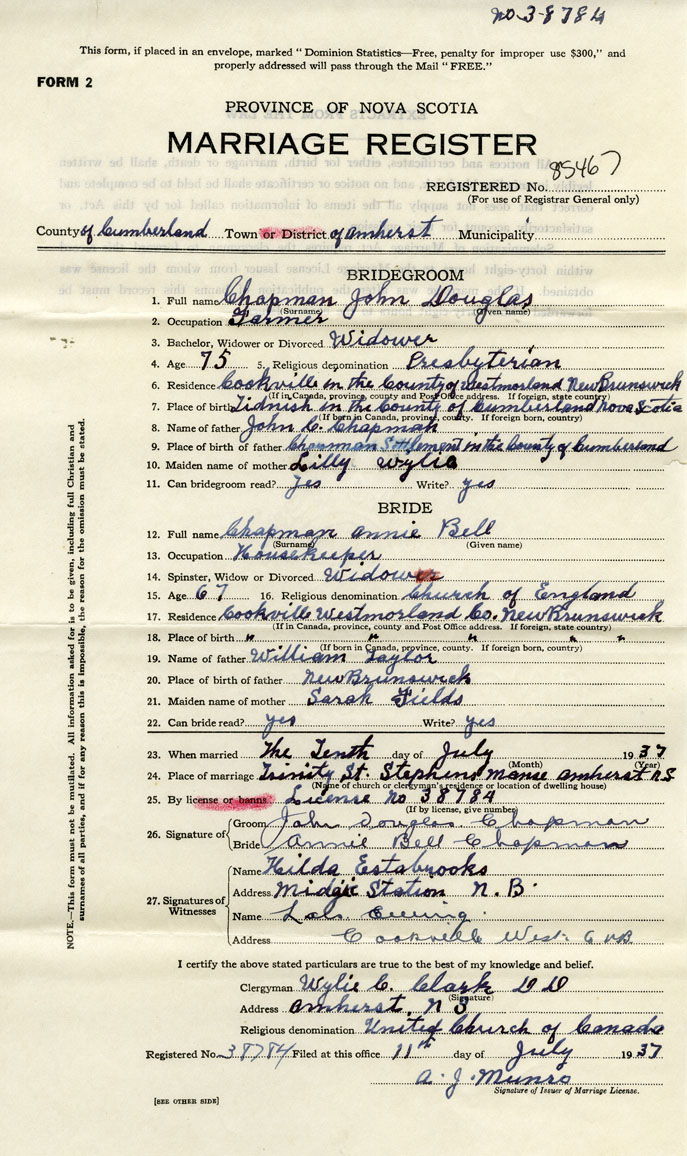 no 38784
This form, if placed in an envelope, marked "Dominion Statistics—Free, penalty for improper use $300," and
properly addressed will pass through the Mail "FREE."
FORM 2
PROVINCE OF NOVA SCOTIA
MARRIAGE REGISTER
REGISTERED No. 85467
(For use of Registrar General only)
County of Cumberland Town or District of Amherst Municipality
BRIDEGROOM
1. Full name Chapman John Douglas
(Surname) (Given name)
2. Occupation Farmer
3. Bachelor, Widower or Divorced Widower
4. Age 75 5. Religious denomination Presbyterian
6. Residence Cookville in the County of Westmorland New Brunswick
(If in Canada, province, county and Post Office address. If foreign, state country)
7. Place of birth Tidnish in the County of Cumberland Nova Scotia
(If born in Canada, province, county. If foreign born, country)
8. Name of father John C. Chapman
9. Place of birth of father Chapman Settlement in the County of Cumberland
10. Maiden name of mother Lilly Wylie
11. Can bridegroom read? yes Write? yes
BRIDE
12. Full name Chapman Annie Bell
(Surname) (Given name)
13. Occupation Housekeeper
14. Spinster, Widow or Divorced Widow
15. Age 67 16. Religious denomination Church of England
17. Residence Cookville Westmorland Co. New Brunswick
(If in Canada, province, county and Post Office address. If foreign, state country)
18. Place of birth " " " " "
(If born in Canada, province, county. If foreign born, country)
19. Name of father William Taylor
20. Place of birth of father New Brunswick
21. Maiden name of mother Sarah Fields
22. Can bride read? yes Write? yes
23. When married The Tenth day of July 1937
(Month) (Year)
24. Place of marriage Trinity St. Stephens Manse Amherst N S
(Name of church or clergyman's residence or location of dwelling house)
25. By license or banns License no 38784
(If by license, give number)
26. Signature of Groom John Douglas Chapman
Bride Annie Bell Chapman
27. Signatures of Witnesses
Name Hilda Estabrooks
Address Midgic Station N. B.
Name Lols Ewing
Address Cookville West. Co N.B.
I certify the above stated particulars are true to the best of my knowledge and belief.
Clergyman Wylie C. Clark D D
(Signature)
Address Amherst, N S
Religious denomination United Church of Canada
Registered No. 38784 Filed at this office 11th day of July 1937
A. J. Munro
Signature of Issuer of Marriage License.
[SEE OTHER SIDE]
NOTE.—This form must not be mutilated. All information asked for is to be given, including full Christian and
surnames of all parties, and if for any reason this is impossible, the reason for the omission must be stated.